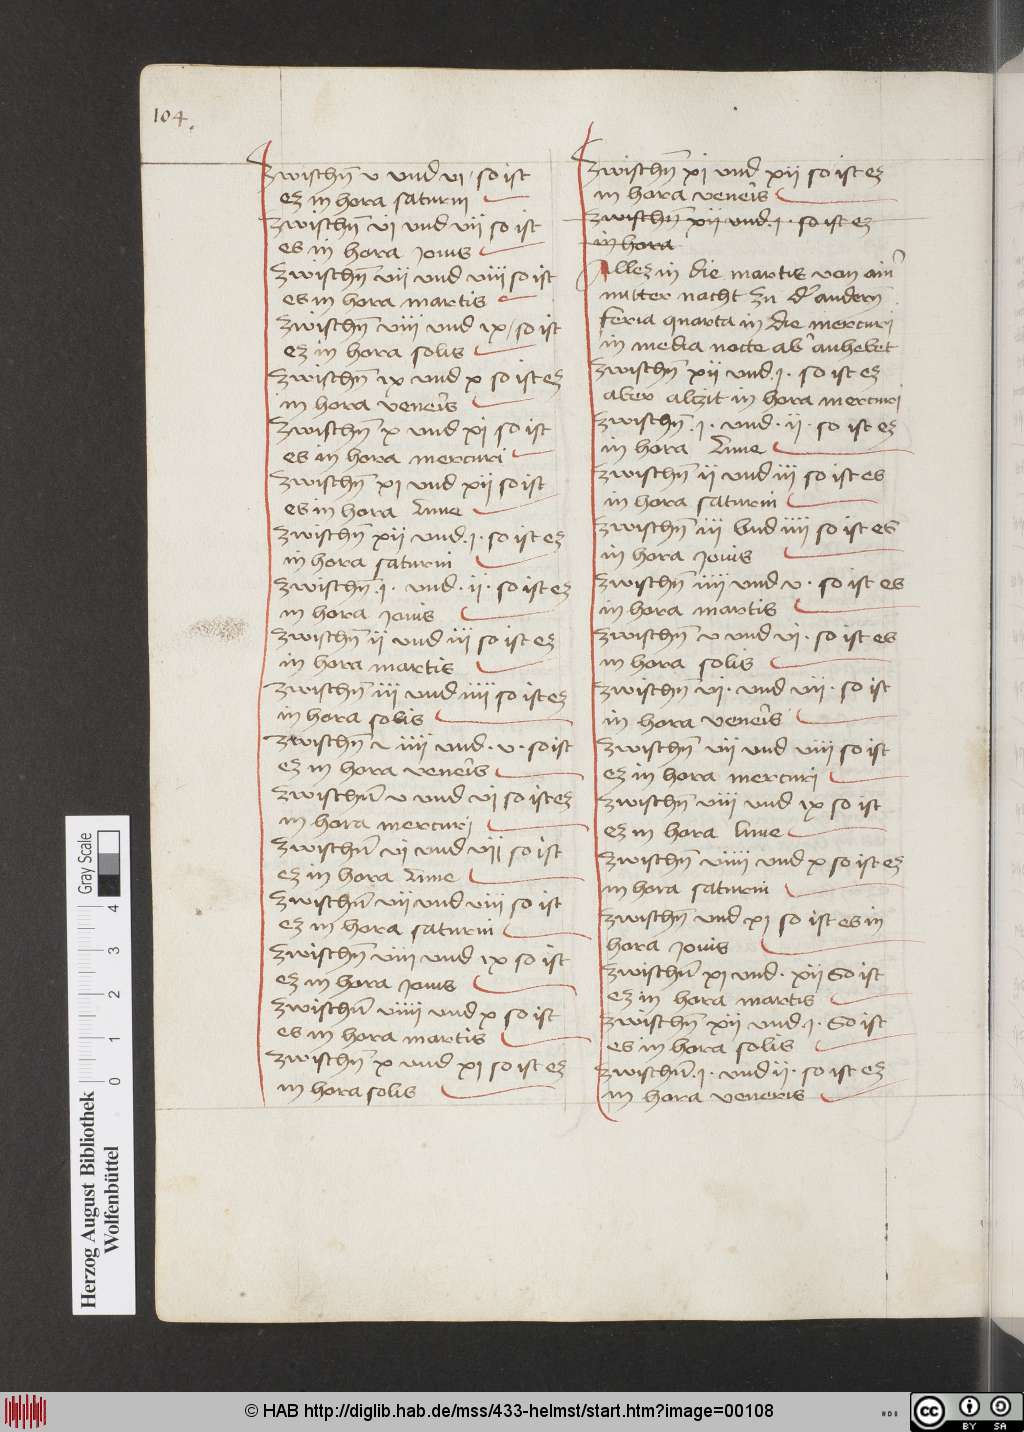 104.
Zwischn̄ v vnd vi / so ist
ez in hora saturni
Zwischn̄ vi vnd vii so ist
es in hora Jouis
Zwischn̄ vii vnd viii so ist
es in hora martis
Zwischn̄ viii vnd ix / so ist
ez in hora solis
Zwischn̄ ix vnd x so ist ez
in hora veneris
Zwischn̄ x vnd xi so ist
es in hora mercuri
Zwischn̄ xi vnd xii so ist
es in hora Lune
Zwischn̄ xii vnd .i. so ist ez
in hora saturni
Zwischn̄ .i. vnd · ii · so ist ez
in hora Jouis
Zwischn̄ ii vnd iii so ist ez
in hora martis
Zwischn̄ iii vnd iiii so ist ez
in hora solis
Zwischn̄ v iiii vnd · v · so ist
ez in hora veneris
Zwischn̄ v vnd vi so ist ez
in hora mercuri
Zwischn̄ vi vnd vii so ist
ez in hora Lune
Zwischn̄ vii vnd viii so ist
ez in hora saturni
Zwischn̄ viii vnd ix so ist
ez in hora Jouis
Zwischn̄ viiii vnd x so ist
es in hora martis
Zwischn̄ x vnd xi so ist ez
in hora solis
Zwischn̄ xi vnd xii so ist ez
in hora veneris
Zwischn̄ xii vnd .i. so ist ez
in hora
Allez in die martis von ain̄
mitter nacht zu d' andern̄
feria quarta in die mercuri
in media nocte ab anhebet
Zwischn̄ xii vnd .i. so ist ez
aber alzit in hora mercuri
Zwischn̄ .i. vnd · ii · so ist ez
in hora Lune
Zwischn̄ ii vnd iii so ist es
in hora saturni
Zwischn̄ iii Vnd iiii so ist es
in hora Jouis
Zwischn̄ iiii vnd v · so ist es
in hora martis
Zwischn̄ v vnd vi · so ist es
in hora solis
Zwischn̄ vi · vnd vii · so ist
in hora veneris
Zwischn̄ vii vnd viii so ist
ez in hora mercuri
Zwischn̄ viii vnd ix so ist
ez in hora lune
Zwischn̄ viiii vnd x so ist ez
in hora saturni
Zwischn̄ vnd xi so ist es in
hora Jouis
Zwischn̄ xi vnd · xii So ist
ez in hora martis
Zwischn̄ xii vnd .i. So ist
es in hora solis
Zwischn̄ .i. vnd ii · so ist ez
in hora veneris
Herzog August Bibliothek
Wolfenbüttel
Gray Scale
0 1 2 3 4
© HAB http://diglib.hab.de/mss/433-helmst/start.htm?image=00108
cc BY SA